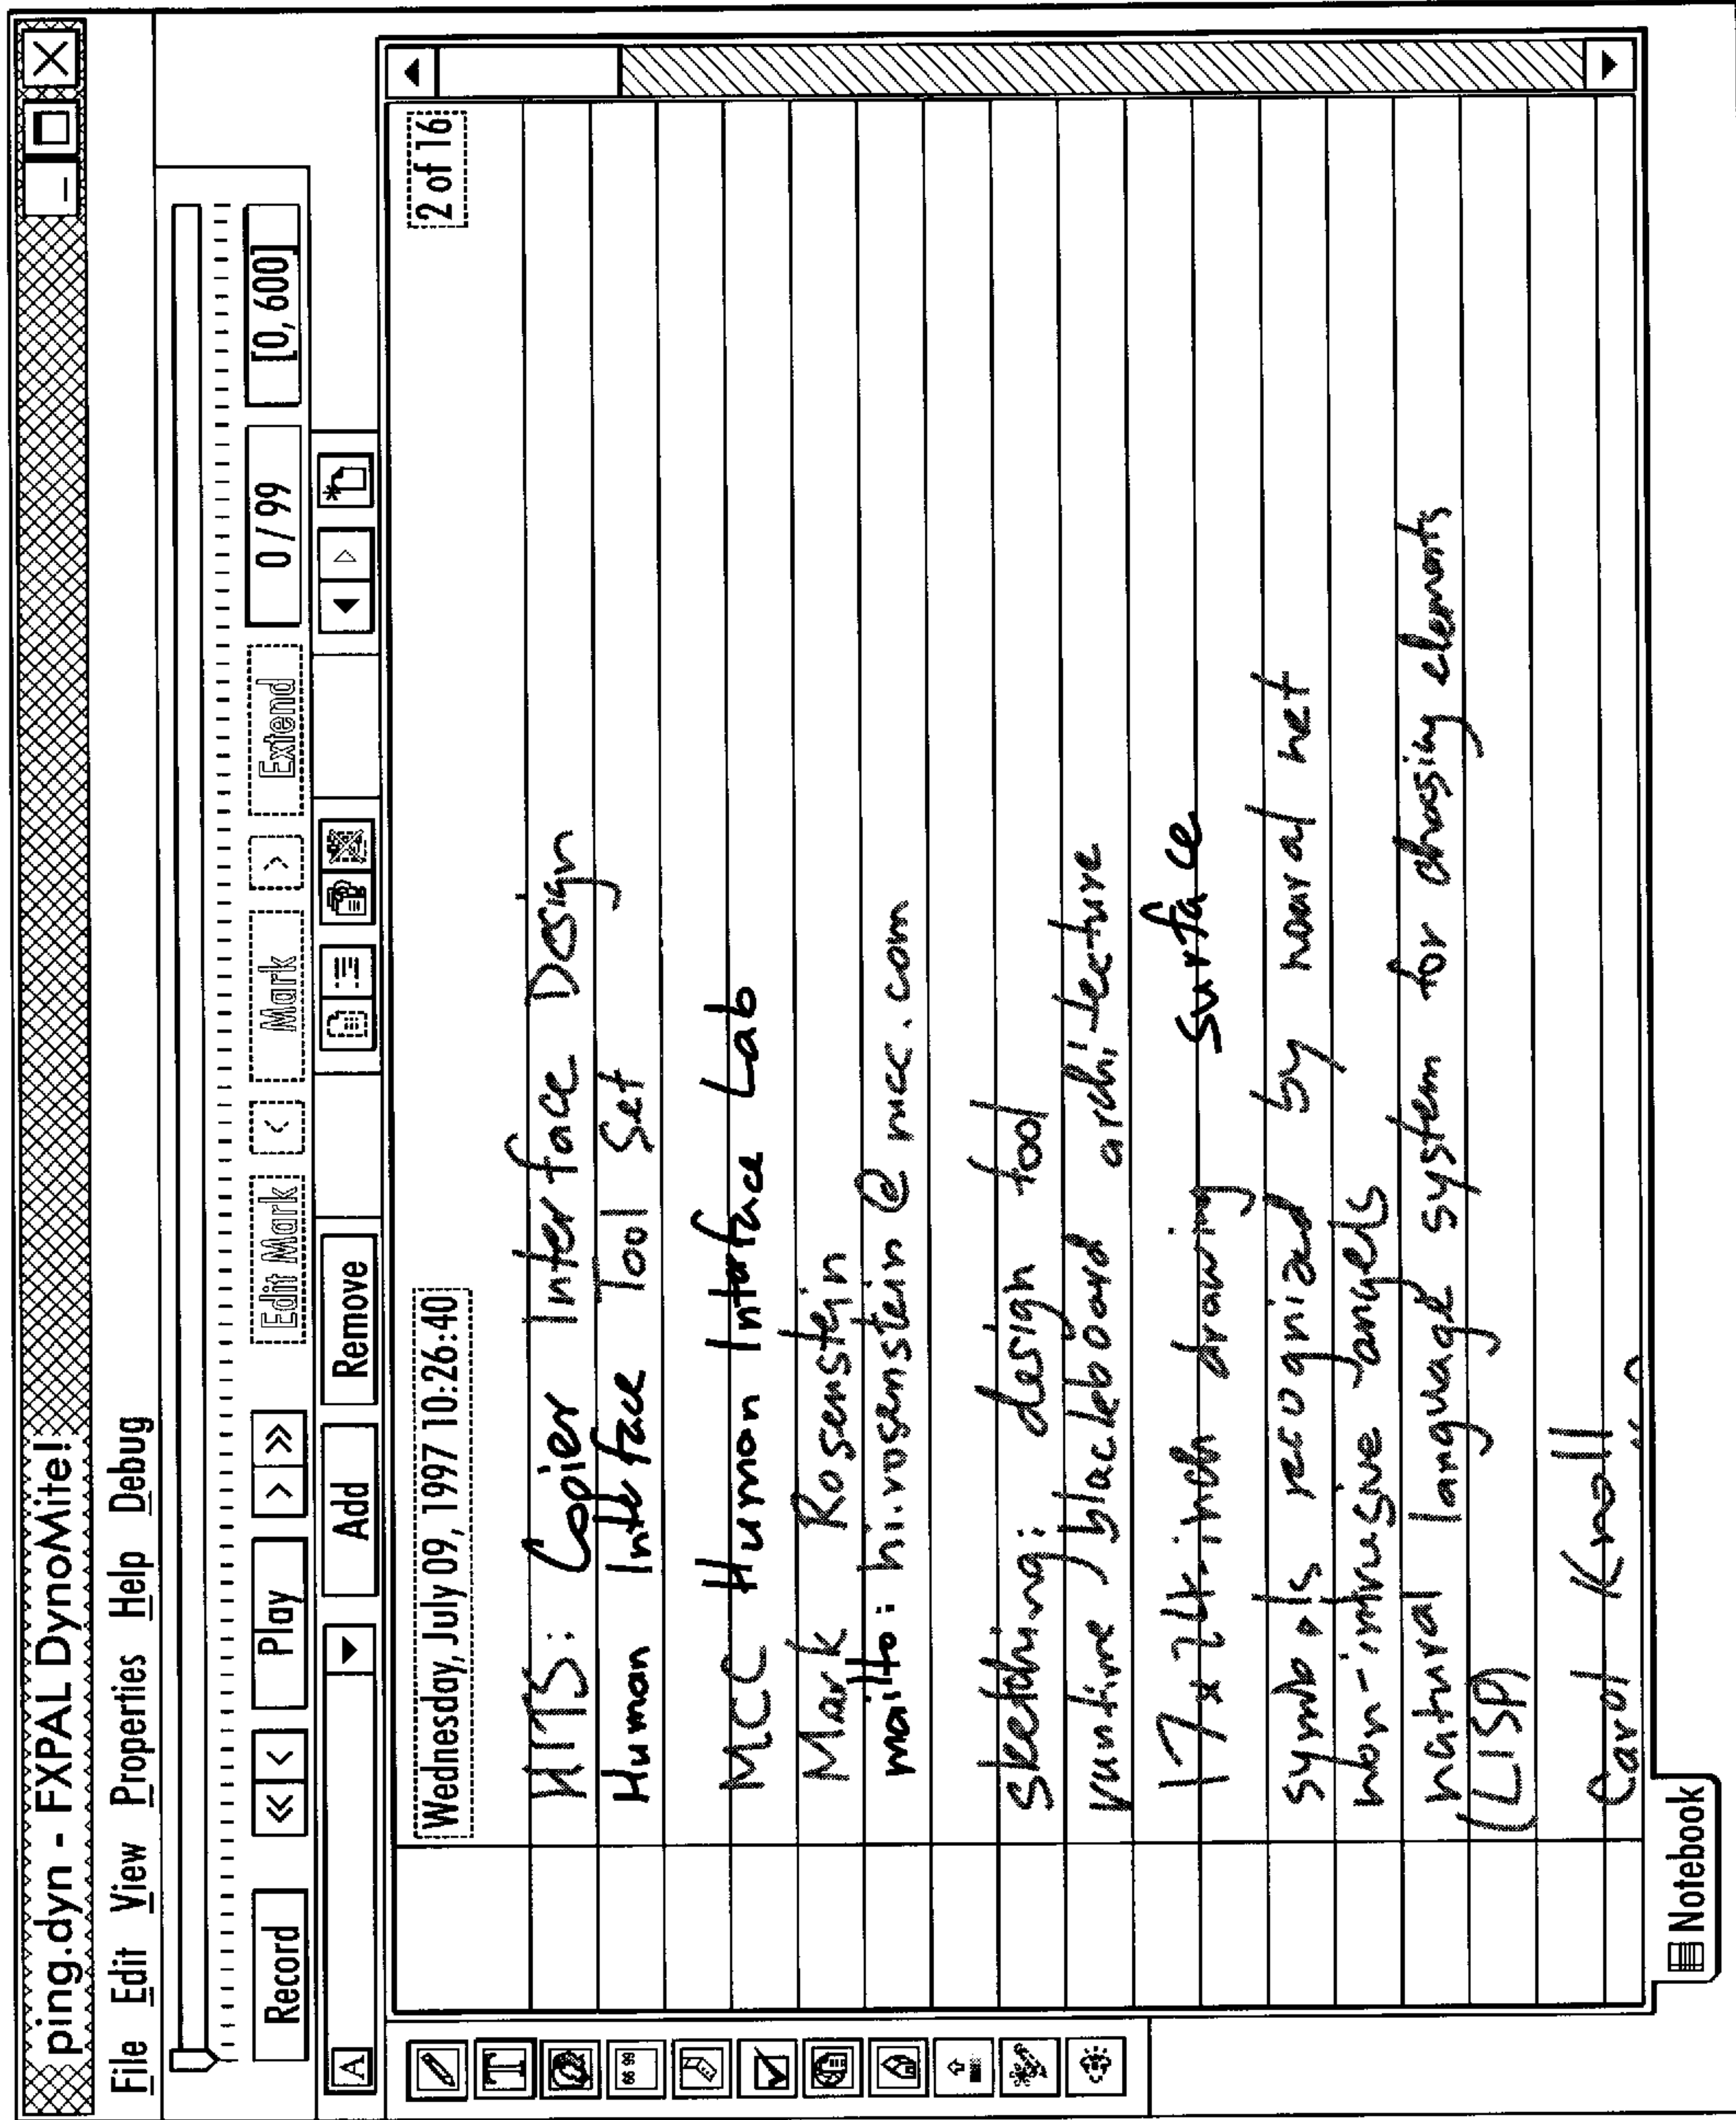 ping.dyn - FXPAL DynoMite!
File Edit View Properties Help Debug
Record << < Play > >> Edit Mark < Mark > Extend 0 / 99 [0, 600]
A Add Remove
Wednesday, July 09, 1997 10:26:40 2 of 16
HITS: Copier Interface Design
Human Interface Tool Set
MCC Human Interface Lab
Mark Rosenstein
mailto: hi.rosenstein@mcc.com
sketching: design tool
runtime blackboard architecture
17x24-inch drawing surface
symbols recognized by nearal net
non-intrusive
natural language system for choosing elements
(LISP)
Carol Knoll
T
66 99
Notebook